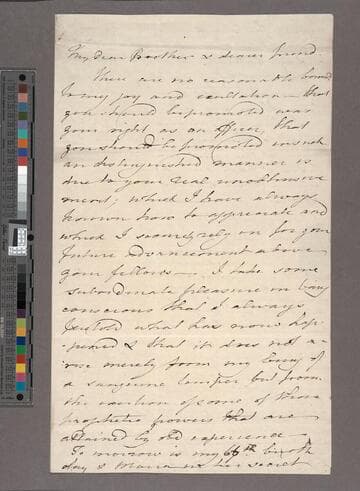 My dear Brother & dearer friend
There are no reasonable bounds
to my joy and exultation — that
you should be promoted near
your right as an officer, that
you should be promoted in such
an distinguished manner is
due to your real unobtrusive
merit; which I have always
known how to appreciate and
which I securely rely on for your
future advancement above
your fellows — I take some
subordinate pleasure in being
conscious that I always
foretold what has now hap-
-pened & that it does not a-
rise merely from my
a sanguine temper but from
the caution of some of those
prophetic powers that are
attained by old experience
To morrow is my 66th birth
day & Maria in her secret